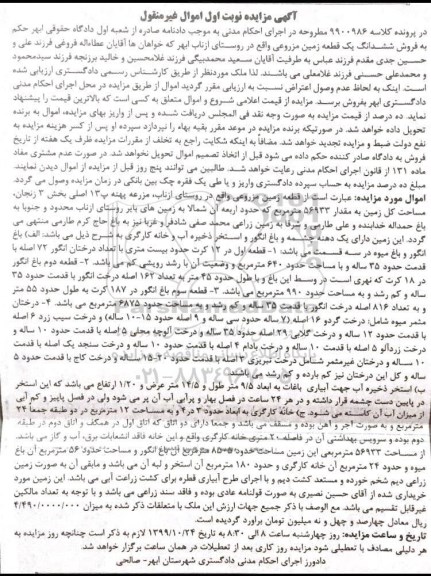 آگهی مزایده نوبت اول اموال غیرمنقول
در پرونده کلاسه ۹۹۰۰۹۸۶ مطروحه در اجرای احکام مدنی به موجب دادنامه صادره از شعبه اول دادگاه حقوقی ابهر حکم
به فروش ششدانگ یک قطعه زمین مزروعی واقع در روستای ازناب ابهر که خواهان ها آقایان عطااله فروغی فرزند علی و
حسین جدی مقدم فرزند عباس به طرفیت آقایان سعید محمدبیگی فرزند غلامحسین و خالید برزنجه فرزند سیدمحمود
و محمدعلی حسنی فرزند غلامعلی می باشند. لذا ملک موردنظر از طریق کارشناس رسمی دادگستری ارزیابی شده
است. اینک به لحاظ عدم وصول اعتراض نسبت به ارزیابی مقرر گردید اموال از طریق مزایده در محل اجرای احکام مدنی
دادگستری ابهر بفروش برسد. مزایده از قیمت اعلامی شروع و اموال متعلق به کسی است که بالاترین قیمت را پیشنهاد
نماید. ده درصد از قیمت مزایده به صورت وجه نقد فی المجلس دریافت شده و پس از واریز بهای مزایده، اموال به برنده
تحویل داده خواهد شد. درصورتیکه برنده مزایده در موعد مقرر بقیه بهاء را نپردازد سپرده او پس از کسر هزینه مزایده به
نفع دولت ضبط و مزایده تجدید خواهد شد. مضافاً به اینکه شکایت راجع به تخلف از مقررات مزایده ظرف یک هفته از تاریخ
فروش به دادگاه صادر کننده حکم داده می شود قبل از اتخاذ تصمیم اموال تحویل نخواهد شد. در صورت عدم مشتری مفاد
ماده ۱۳۱ از قانون اجرای احکام مدنی رعایت خواهد شد. طالبین می توانند پنج روز قبل از مزایده از اموال دیدن نمایند.
مبلغ ده درصد مزایده به حساب سپرده دادگستری واریز و یا طی یک فقره چک بین بانکی در زمان مزایده وصول می گردد.
اموال مورد مزایده: عبارت است از یک زمین مزروعی واقع در روستای ازناب، مزرعه پهنه پ۱۳ اصلی بخش ۳ زنجان،
مساحت کل زمین به مقدار ۵۶۹۳۳ مترمربع که حدود اربعه آن شمالا به زمین های بایر روستای ازناب محدود و جنوبا به
باغ حمداله خدابنده و علی طارمی و شرقا به زمین زراعی محمد صفی شادفر و غربا نیز به باغ حاج کرم طارمی منتهی می
گردد. این زمین دارای یک دهنه و باغ انگور و استخر ذخیره آب و خانه کارگری به شرح ذیل می باشد: الف) باغ
انگور و باغ میوه در سه قسمت می باشد: ۱- قطعه اول در ۱۷ کرت حدود بیست متری با تعداد درختان انگور ۷۲ اصله با
قدمت حدود ۳۵ ساله و با مساحت حدود ۶۴۰ مترمربع و وضعیت آن با رشد رویشی کم می باشد. ۲- قطعه دوم باغ انگور
در ۱۸ کرت که نهری است در وسط این باغ و با طول حدود ۴۵ متر به تعداد ۱۶۲ اصله درخت انگور با قدمت حدود ۳۵
ساله و کم رشد و به مساحت حدود ۹۹۰ مترمربع می باشد. ۳- قطعه سوم باغ انگور در ۱۸۷ کرت به طول حدود ۵۵ متر
و به تعداد ۸۱۶ اصله درخت انگور با قدمت ۳۵ ساله و کم رشد و به مساحت حدود ۶۸۷۵ مترمربع می باشد. ۴- درختان
مثمر میوه شامل: درخت گردو ۱۶ اصله (۷ ساله حدود سی ساله و ۹ اصله حدود ۱۵-۱۰ ساله) و درخت سیب زرد ۶ اصله
با قدمت حدود ۱۲ ساله و درخت گلابی ۲۹ اصله حدود ۳۵ ساله و درخت آلوچه محلی ۵ اصله با قدمت حدود ۱۰ ساله و
درخت زردآلو ۵ اصله با قدمت ۱۰ ساله و درخت بادام ۴ اصله با قدمت حدود ۱۰ ساله و درخت سنجد یک اصله با قدمت
۱۰ ساله و درختان غیرمثمر شامل درخت تبریزی ۴ اصله با قدمت حدود ۲۰-۱۵ ساله و درخت کاج با قدمت حدود ۵
ساله و کل این درختان نیز کم بارده و کم رشد می باشند.
ب) استخر ذخیره آب جهت آبیاری باغات به ابعاد ۹/۵ متر طول و ۱۴/۵ متر عرض و ۱/۲۰ ارتفاع می باشد که این استخر
در پایین دست چشمه قرار داشته و در هر ۲۴ ساعت در فصل بهار و پرآبی آب آن پر می شود ولی در فصل پاییز و کم آبی
از میزان آب آن کاسته می شود. ج) خانه کارگری به ابعاد حدود ۳ در ۴ و به مساحت ۱۲ مترمربع در دو طبقه جمعا ۲۴
مترمربع و به صورت آجر و آهن بوده و مسقف می باشد و جمعا دارای دو اتاق که اتاق اول در همکف و اتاق دوم در طبقه
دوم بوده و سرویس بهداشتی آن در فاصله ۲۰ متری خانه کارگری واقع و این خانه فاقد انشعابات برق، آب و گاز می باشد.
از مساحت ۵۶۹۳۳ مترمربعی این زمین مساحت حدود ۸۵۰۵ مترمربع آن باغ انگور و مساحت حدود ۵۶ مترمربع آن باغ
میوه و حدود ۲۴ مترمربع آن خانه کارگری و حدود ۱۸۰ مترمربع آن استخر و لبه آن می باشد و مابقی آن به صورت زمین
زراعی دیم شخم خورده و مستعد کشت دیم و با اجرای طرح آبیاری قطره برای کشت زراعت آبی می باشد. این زمین مورد
خریداری شده از آقای حسین نصیری به صورت قولنامه عادی بوده و فاقد سند زراعی می باشد و با توجه به تعداد مالکین
غیرقابل تقسیم می باشد. مع الوصف با ذکر جمیع جهات ارزش این ملک با متعلقات ذکر شده به میزان ۴/۴۹۰/۰۰۰/۰۰۰
ریال معادل چهارصد و چهل و نه میلیون تومان برآورد گردیده است.
تاریخ و ساعت مزایده: روز چهارشنبه ساعت ۸ الی ۸:۳۰ به تاریخ ۱۳۹۹/۱۰/۲۴ لازم به ذکر است چنانچه روز مزایده به
هر دلیلی مصادف با تعطیلی شود مزایده روز کاری بعد از تعطیلات در همان ساعت برگزار خواهد شد.
دادورز اجرای احکام مدنی دادگستری شهرستان ابهر- صالحی